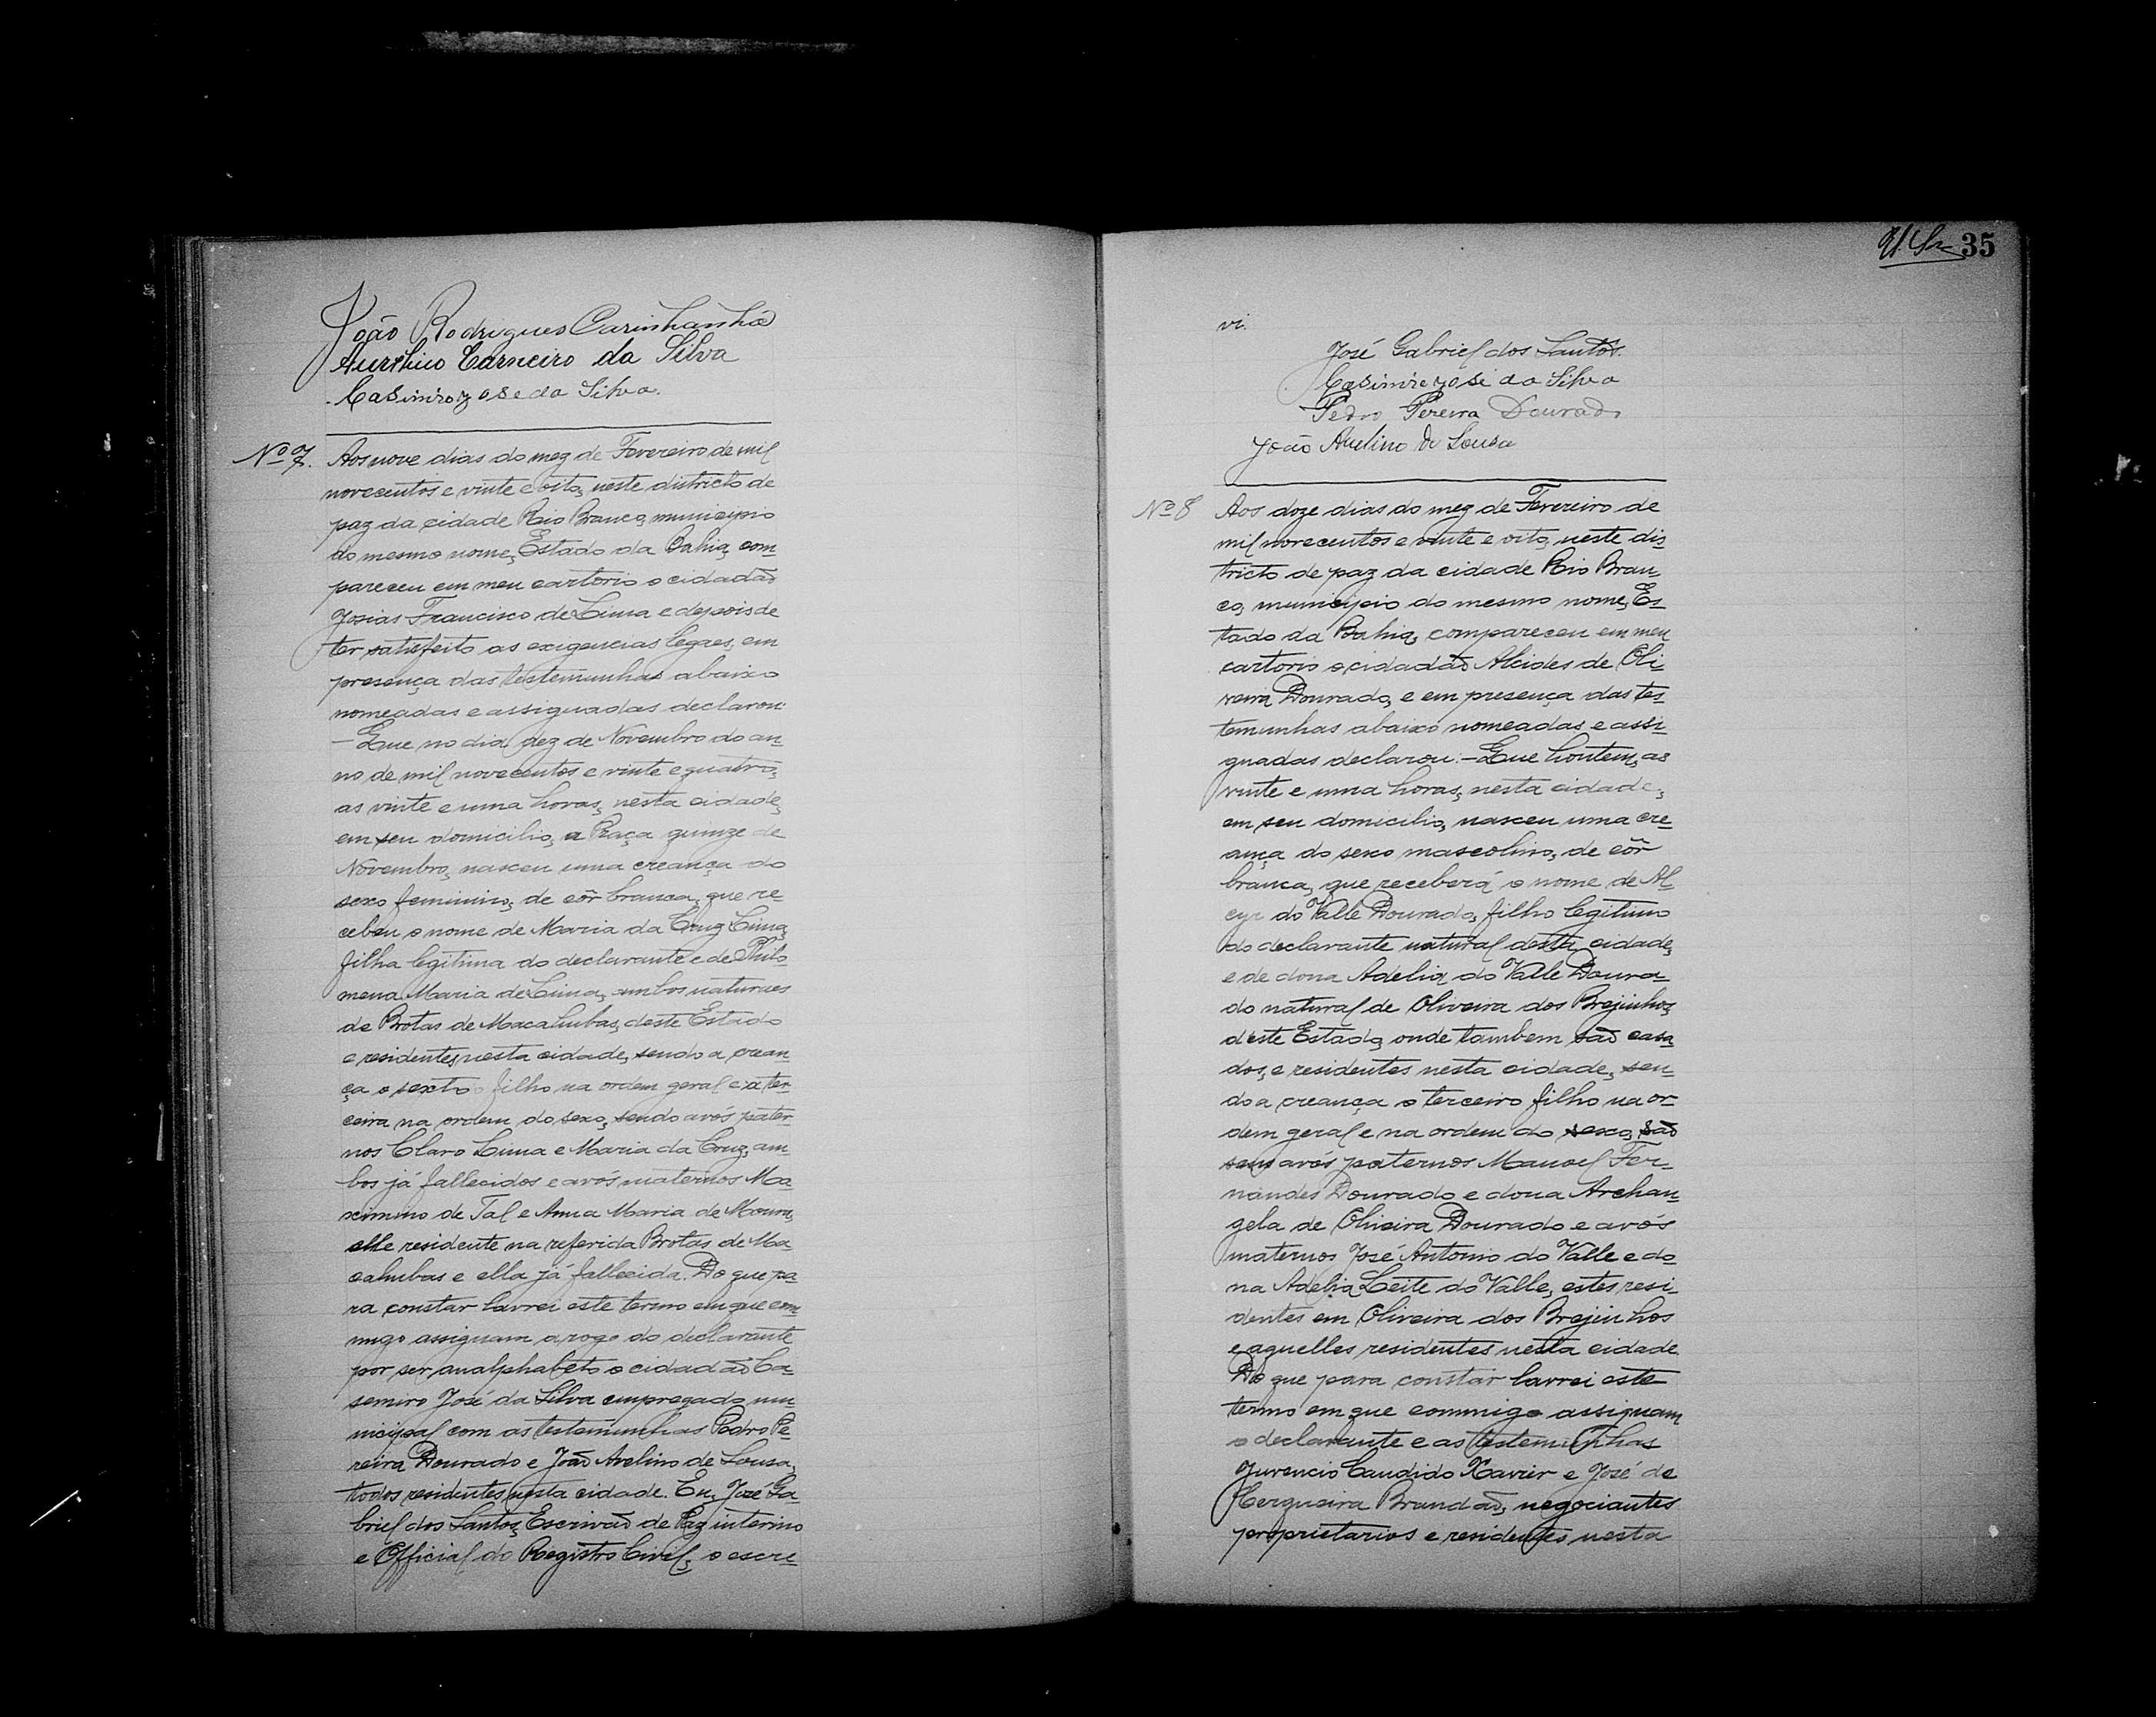 João Rodrigues Carinhanha
Aurelino Carneiro da Silva
Casimiro Jose da Silva.
Nº 7. Aos nove dias do mez de Fevereiro de mil
novecentos e vinte e oito, neste districto de
paz da cidade Rio Branco, municipio
do mesmo nome, Estado da Bahia, com-
pareceu em meu cartorio o cidadão
Josias Francisco de Lima e depois de
ter satisfeito as exigencias legaes, em
presença das testemunhas abaixo
nomeadas e assignadas declarou:
—Que no dia dez de Novembro do an-
no de mil novecentos e vinte e quatro,
as vinte e uma horas, nesta cidade,
em seu domicilio, a Praça quinze de
Novembro, nasceu uma creança do
sexo feminino, de côr branca, que re-
cebeu o nome de Maria da Cruz Lima,
filha legitima do declarante e de Philo-
mena Maria de Lima, ambos naturaes
de Brotas de Macahubas, deste Estado
e residentes nesta cidade, sendo a crean-
ça o sexto filho na ordem geral e a ter-
ceira na ordem do sexo, sendo avós pater-
nos Claro Lima e Maria da Cruz, am-
bos já fallecidos e avós maternos Ma-
ximino de Tal e Anna Maria de Moura,
elle residente na referida Brotas de Ma-
cahubas e ella já fallecida. Do que pa-
ra constar lavrei este termo em que com-
migo assignam a rogo do declarante
por ser analphabeto o cidadão Ca-
semiro José da Silva empregado mu-
nicipal com as testemunhas Pedro Pe-
reira Dourado e João Avelino de Sousa,
todos residentes nesta cidade. Eu, José Ga-
briel dos Santos, Escrivão de Paz interino
e Official do Registro Civil, o escre-
35
vi.
José Gabriel dos Santos.
Casimiro José da Silva
Pedro Pereira Dourado
João Avelino de Sousa
Nº 8 Aos doze dias do mez de Fevereiro de
mil novecentos e vinte e oito, neste dis-
tricto de paz da cidade Rio Bran-
co, municipio do mesmo nome, Es-
tado da Bahia, compareceu em meu
cartorio o cidadão Alcides de Oli-
veira Dourado, e em presença das tes-
temunhas abaixo nomeadas e assi-
gnadas declarou:—Que hontem, as
vinte e uma horas, nesta cidade,
em seu domicilio, nasceu uma cre-
ança do sexo mascolino, de côr
branca, que receberá o nome de Al-
cyr do Valle Dourado, filho legitimo
do declarante natural desta cidade,
e de dona Adelia do Valle Doura-
do natural de Oliveira dos Brejinhos,
deste Estado, onde tambem são casa-
dos, e residentes nesta cidade, sen-
do a creança o terceiro filho na or-
dem geral e na ordem do sexo, são
seus avós paternos Manoel Fer-
nandes Dourado e dona Archan-
gela de Oliveira Dourado e avós
maternos José Antonio do Valle e do-
na Adelia Leite do Valle, estes resi-
dentes em Oliveira dos Brejinhos
e aquelles residentes nesta cidade.
Do que para constar lavrei este
termo em que commigo assignam
o declarante e as testemunhas
Juvencio Candido Xavier e José de
Cerqueira Brandão, negociantes
proprietarios e residentes nesta